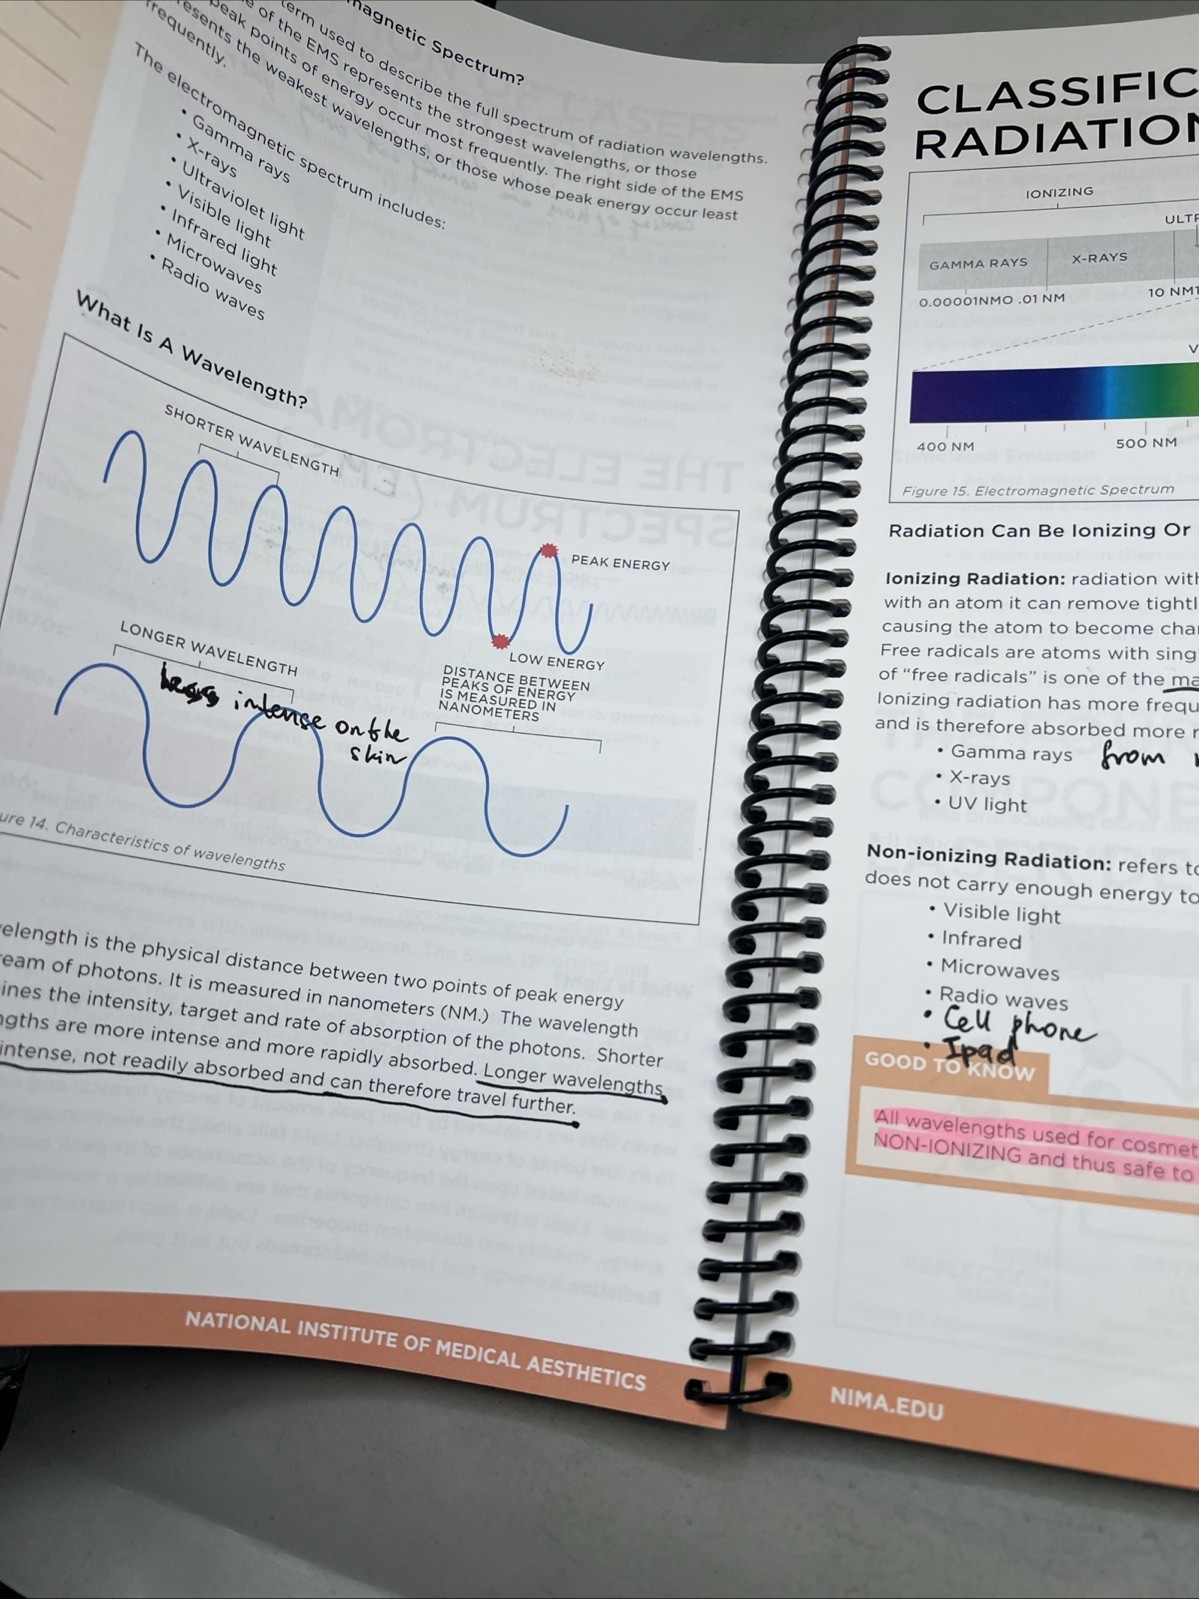 magnetic Spectrum?
term used to describe the full spectrum of radiation wavelengths.
of the EMS represents the strongest wavelengths, or those
peak points of energy occur most frequently. The right side of the EMS
the weakest wavelengths, or those whose peak energy occur least
frequently.
The electromagnetic spectrum includes:
• Gamma rays
• X-rays
• Ultraviolet light
• Visible light
• Infrared light
• Microwaves
• Radio waves
What Is A Wavelength?
SHORTER WAVELENGTH
PEAK ENERGY
LOW ENERGY
LONGER WAVELENGTH
DISTANCE BETWEEN
PEAKS OF ENERGY
IS MEASURED IN
NANOMETERS
intense on the
skin
14. Characteristics of wavelengths
is the physical distance between two points of peak energy
of photons. It is measured in nanometers (NM.) The wavelength
the intensity, target and rate of absorption of the photons. Shorter
are more intense and more rapidly absorbed. Longer wavelengths
intense, not readily absorbed and can therefore travel further.
NATIONAL INSTITUTE OF MEDICAL AESTHETICS
CLASSIFIC
RADIATION
IONIZING
ULTR
GAMMA RAYS
X-RAYS
0.00001NMO .01 NM
10 NM1
V
400 NM
500 NM
Figure 15. Electromagnetic Spectrum
Radiation Can Be Ionizing Or
Ionizing Radiation: radiation with
with an atom it can remove tightl
causing the atom to become cha
Free radicals are atoms with sing
of “free radicals” is one of the ma
Ionizing radiation has more frequ
and is therefore absorbed more r
• Gamma rays from
• X-rays
• UV light
Non-ionizing Radiation: refers to
does not carry enough energy to
• Visible light
• Infrared
• Microwaves
• Radio waves
• Cell phone
• Ipad
GOOD TO KNOW
All wavelengths used for cosmet
NON-IONIZING and thus safe to
NIMA.EDU